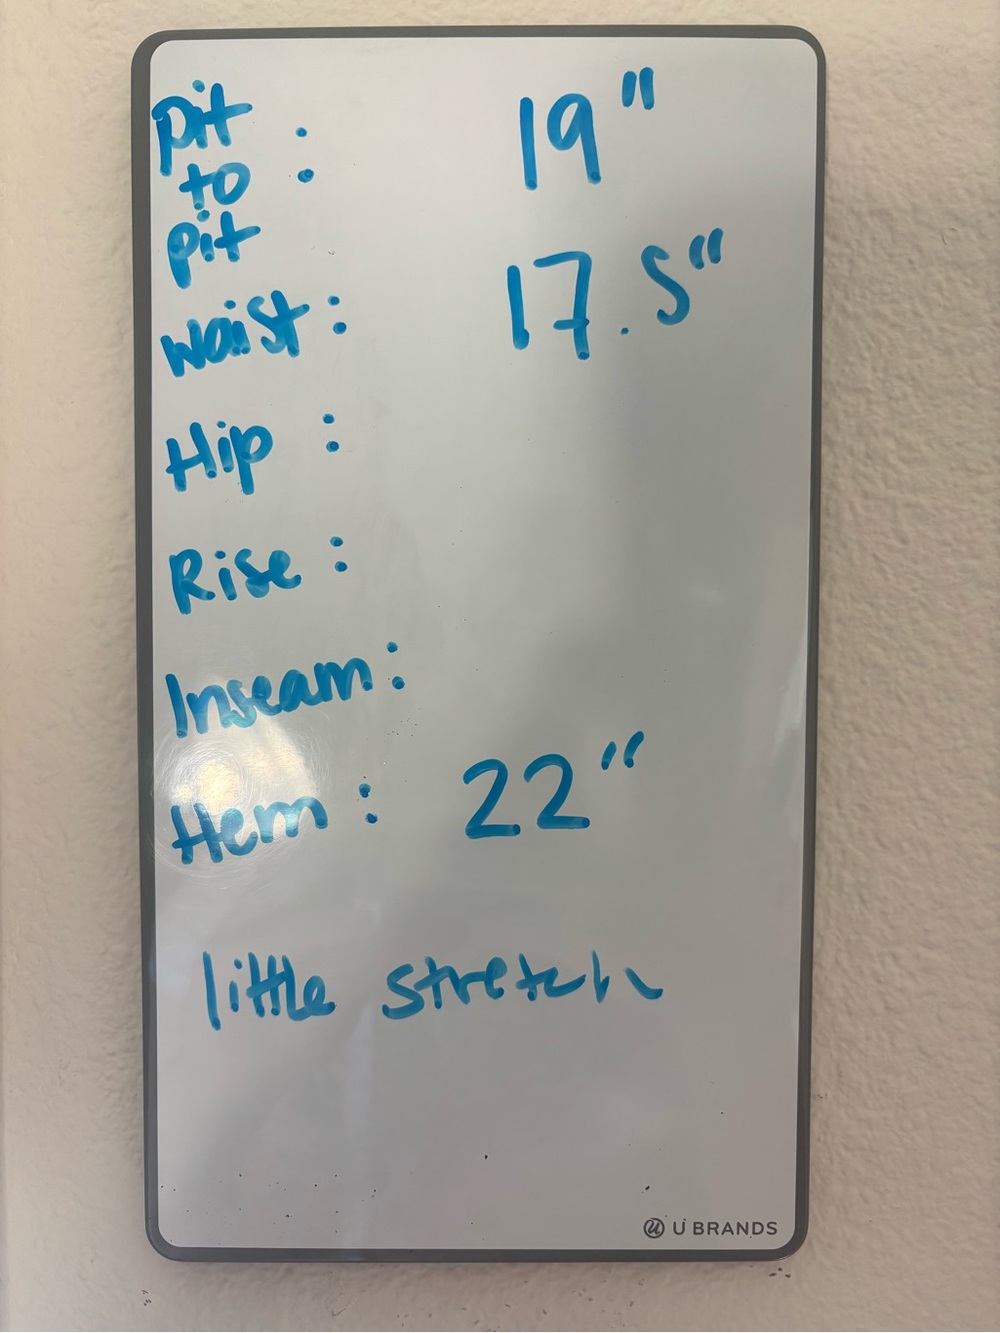 pit
to : 19"
pit
waist: 17.5"
Hip :
Rise :
Inseam:
Hem : 22"
little stretch
U BRANDS